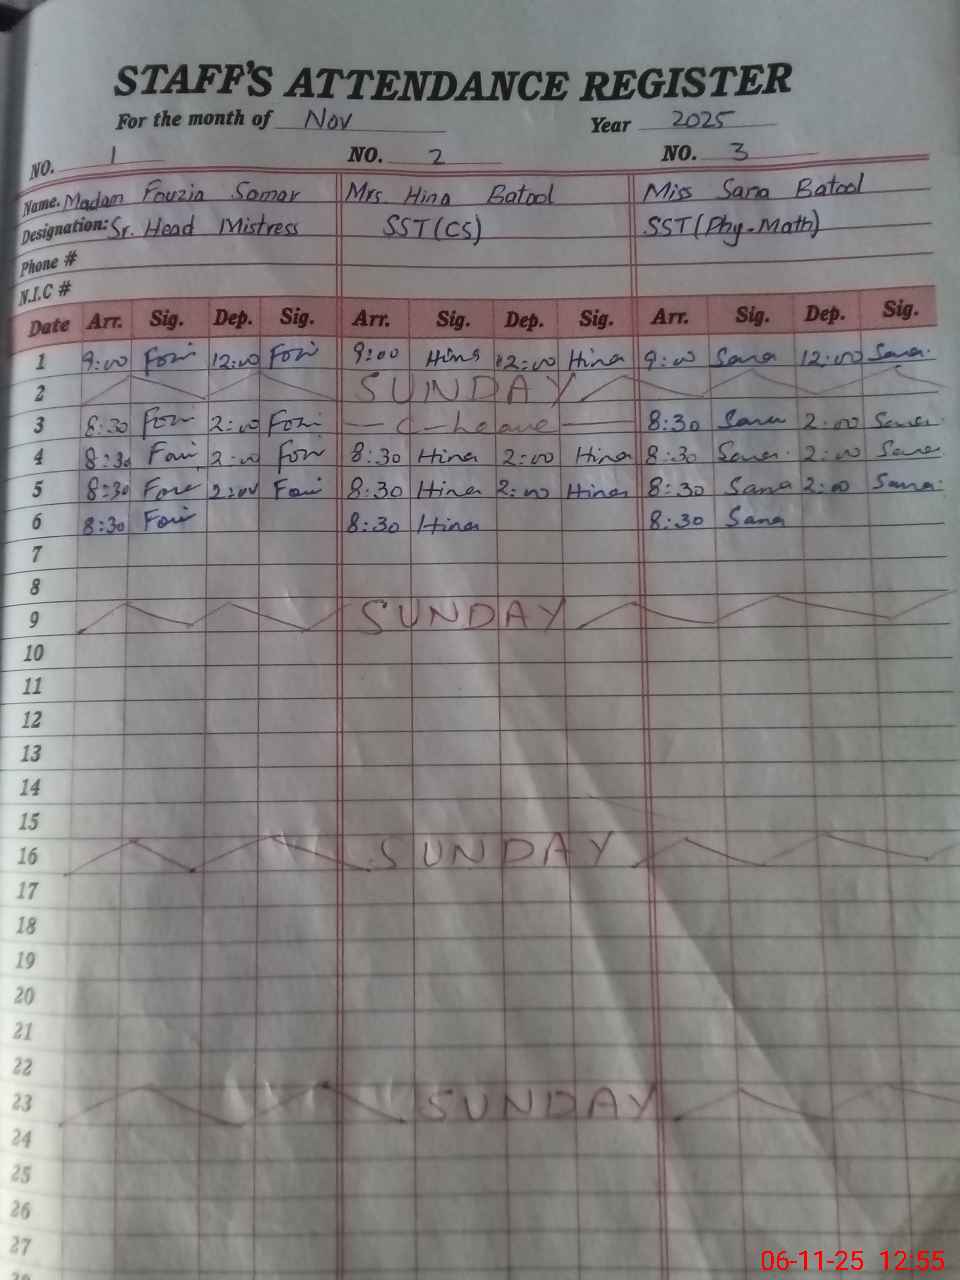 STAFF'S ATTENDANCE REGISTER
For the month of Nov Year 2025
NO. 1 NO. 2 NO. 3
Name. Madam Fouzia Samar Mrs Hina Batool Miss Sana Batool
Designation: Sr. Head Mistress SST(CS) SST(Phy-Math)
Phone #
N.I.C #
Date Arr. Sig. Dep. Sig. Arr. Sig. Dep. Sig. Arr. Sig. Dep. Sig.
1 9:00 12:00 9:00 Hina 12:00 Hina 9:00 Sana 12:00 Sana
2 SUNDAY
3 8:30 2:00 C-Leave 8:30 Sana 2:00 Sana
4 8:30 2:00 8:30 Hina 2:00 Hina 8:30 Sana 2:00 Sana
5 8:30 2:00 8:30 Hina 2:00 Hina 8:30 Sana 2:00 Sana
6 8:30 8:30 Hina 8:30 Sana
7
8
9 SUNDAY
10
11
12
13
14
15
16 SUNDAY
17
18
19
20
21
22
23 SUNDAY
24
25
26
27
06-11-25 12:55